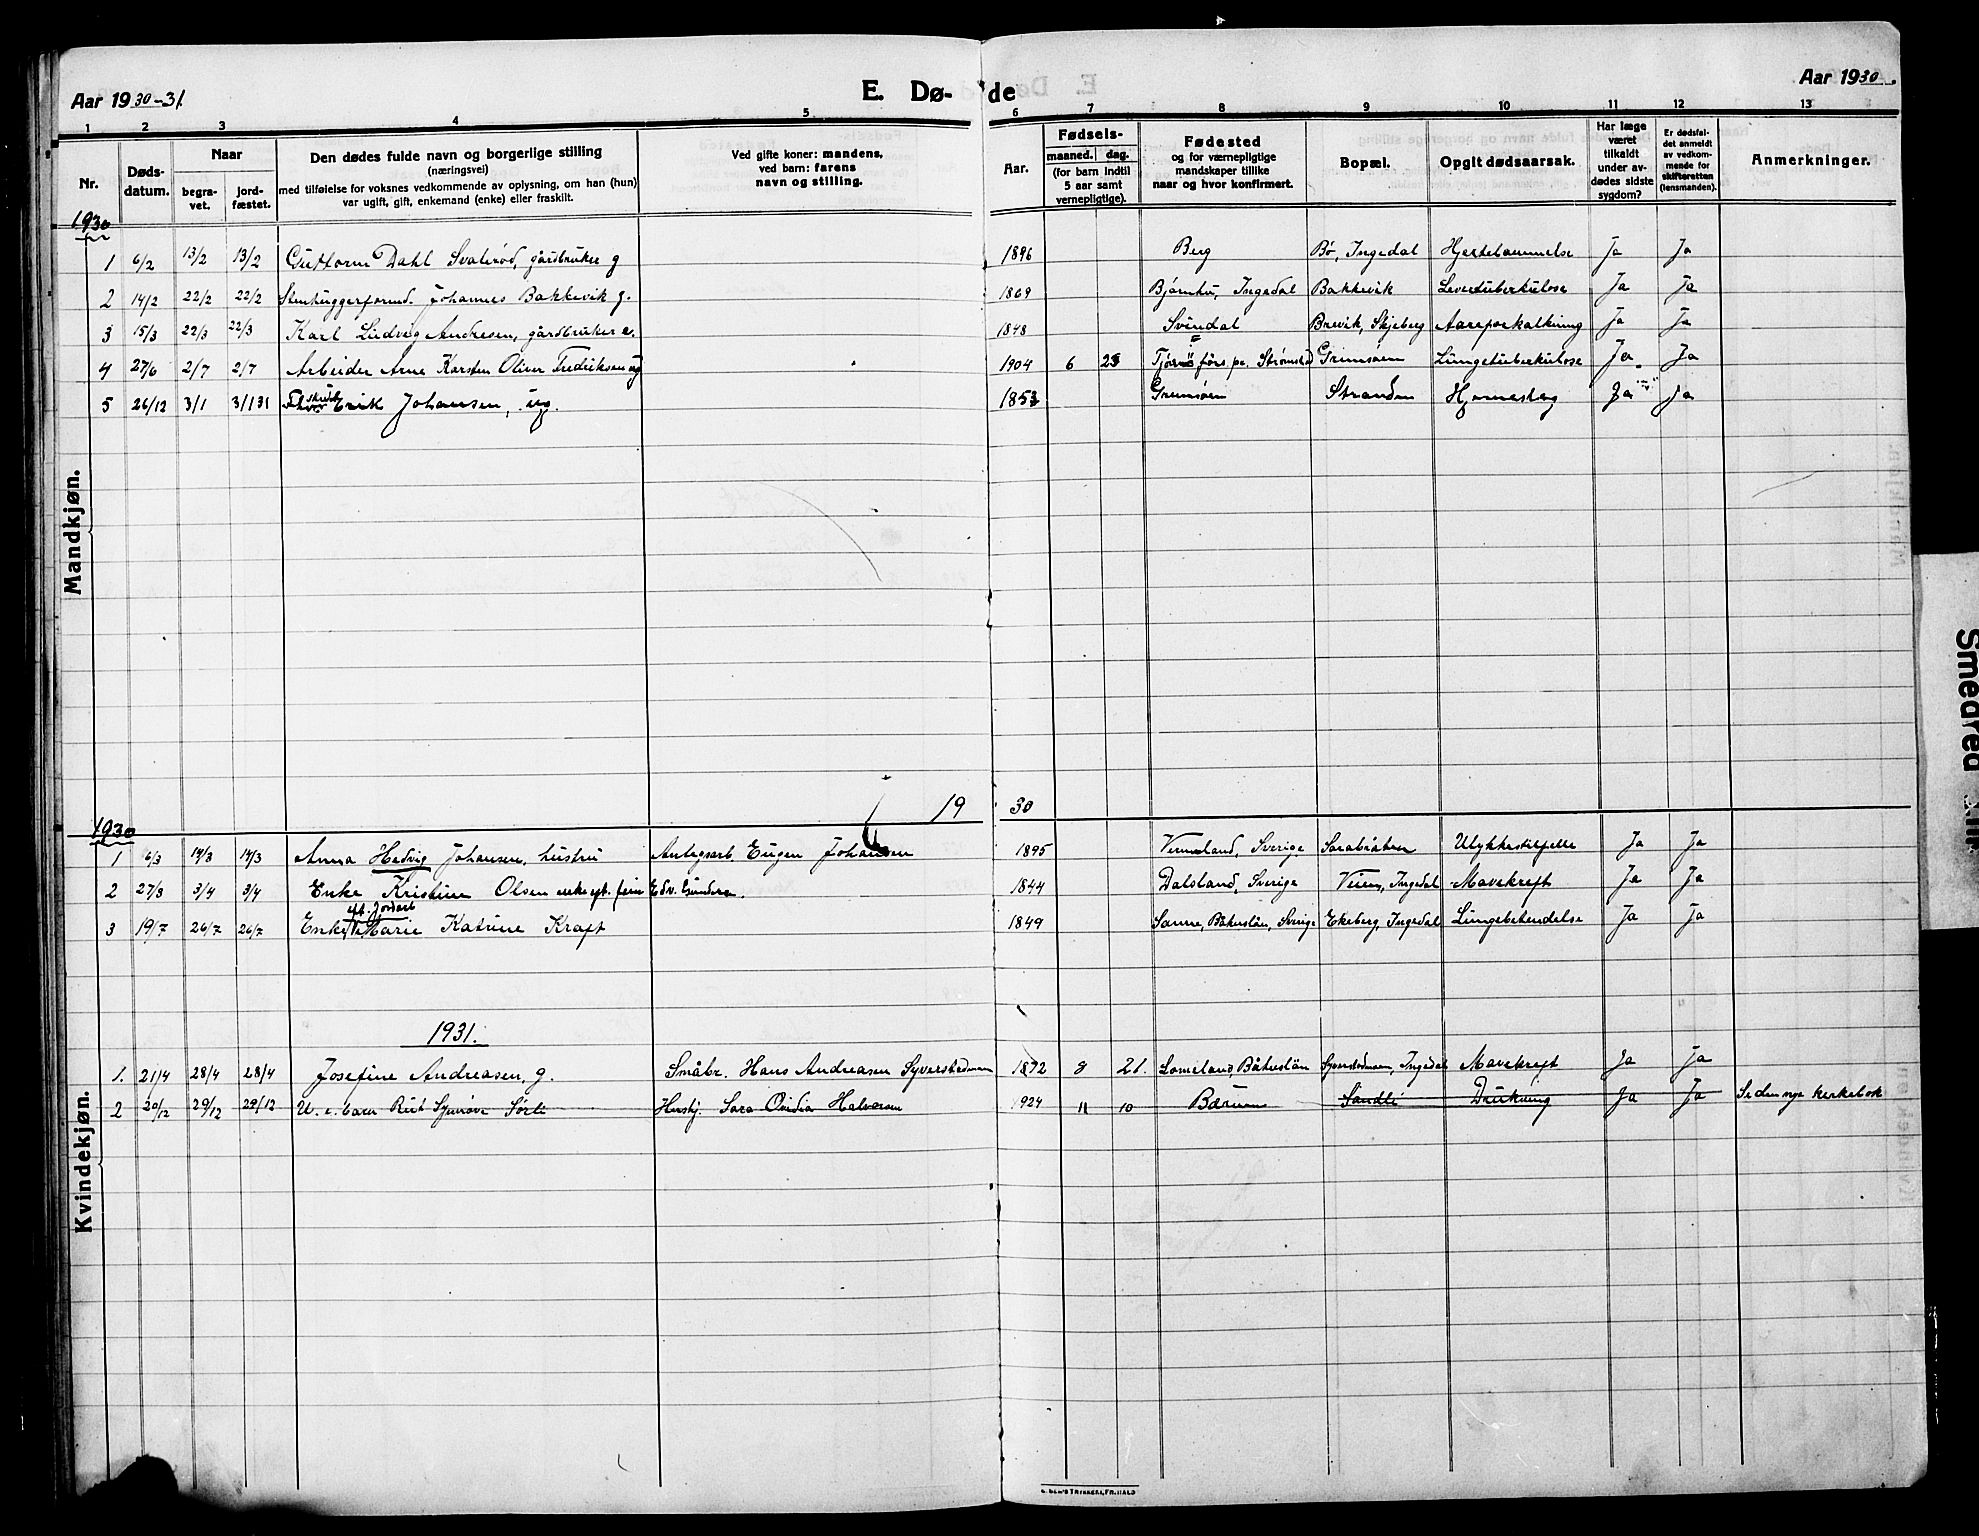 Aar 1930-31.
E. Dø- de
Aar 1930.
1 2 3 4 5 6 7 8 9 10 11 12 13
Nr.
Døds-
datum.
Naar
begra-
vet.
jord-
fæstet.
Den dødes fulde navn og borgerlige stilling
(næringsvei)
med tilføielse for voksnes vedkommende av oplysning, om han (hun)
var ugift, gift, enkemand (enke) eller fraskilt.
Ved gifte koner: mandens,
ved barn: farens
navn og stilling.
Aar.
Fødsels-
maaned. dag.
(for barn indtil
5 aar samt
vernepligtige).
Fødested
og for værnepligtige
mandskaper tillike
naar og hvor konfirmert.
Bopæl.
Opgit dødsaarsak.
Har læge
været
tilkaldt
under av-
dødes sidste
sygdom?
Er dødsfal-
det anmeldt
av vedkom-
mende for
skifteretten
(lensmanden).
Anmerkninger.
Mandkjøn.
1930
1 6/2 13/2 13/2 Guttorm Dahl Svaterød, gårdbruker g 1896 Berg Bø, Ingedal Hjertelammelse Ja Ja
2 14/2 22/2 22/2 Stenhuggerformd. Johannes Bakkevik g. 1869 Ingedal Bakkevik Levertuberkulose Ja Ja
3 15/3 22/3 22/3 Karl Ludvig Andresen, gårdbruker e. 1848 Svindal Brevik, Skjeberg Aareforkalkning Ja Ja
4 27/6 2/7 2/7 Arbeider Arne Karsten Oliver Fredriksen ug 1904 6 25 Tjärnö förs. pr. Strømstad Grimsøen Lungetuberkulose Ja Ja
5 26/12 3/1 3/1 31 Erik Johansen, ug. 1853 Grimsøen Stranden Ja Ja
19 30
Kvindekjøn.
1930
1 6/3 14/3 14/3 Anna Hedvig Johansen, hustru Anlegsarb. Eugen Johansen 1895 Vermland, Sverige Sarabråten Ulykkestilfelle Ja Ja
2 27/3 3/4 3/4 Enke Kristine Olsen Edv. Gundersen. 1844 Dalsland, Sverige Veien, Ingedal Mavekreft Ja Ja
eft. Jordarb
3 19/7 26/7 26/7 Enke Marie Katrine Kraft 1849 Sanne, Båhuslän, Sverige Ekeberg, Ingedal Lungebetendelse Ja Ja
1931.
1. 21/4 28/4 28/4 Josefine Andreasen, g. Småbr. Hans Andreasen Syverstadmoen 1872 8 21. Lomeland, Båhuslän Syverstadmoen, Ingedal Mavekreft Ja Ja
2 20/12 29/12 29/12 U. e. barn Rut Synnøve Sørli Husbj. Sara Ovidia Halvorsen 1924 11 10 Bærum Sandli Drukning Ja Ja Se den nye kirkebok